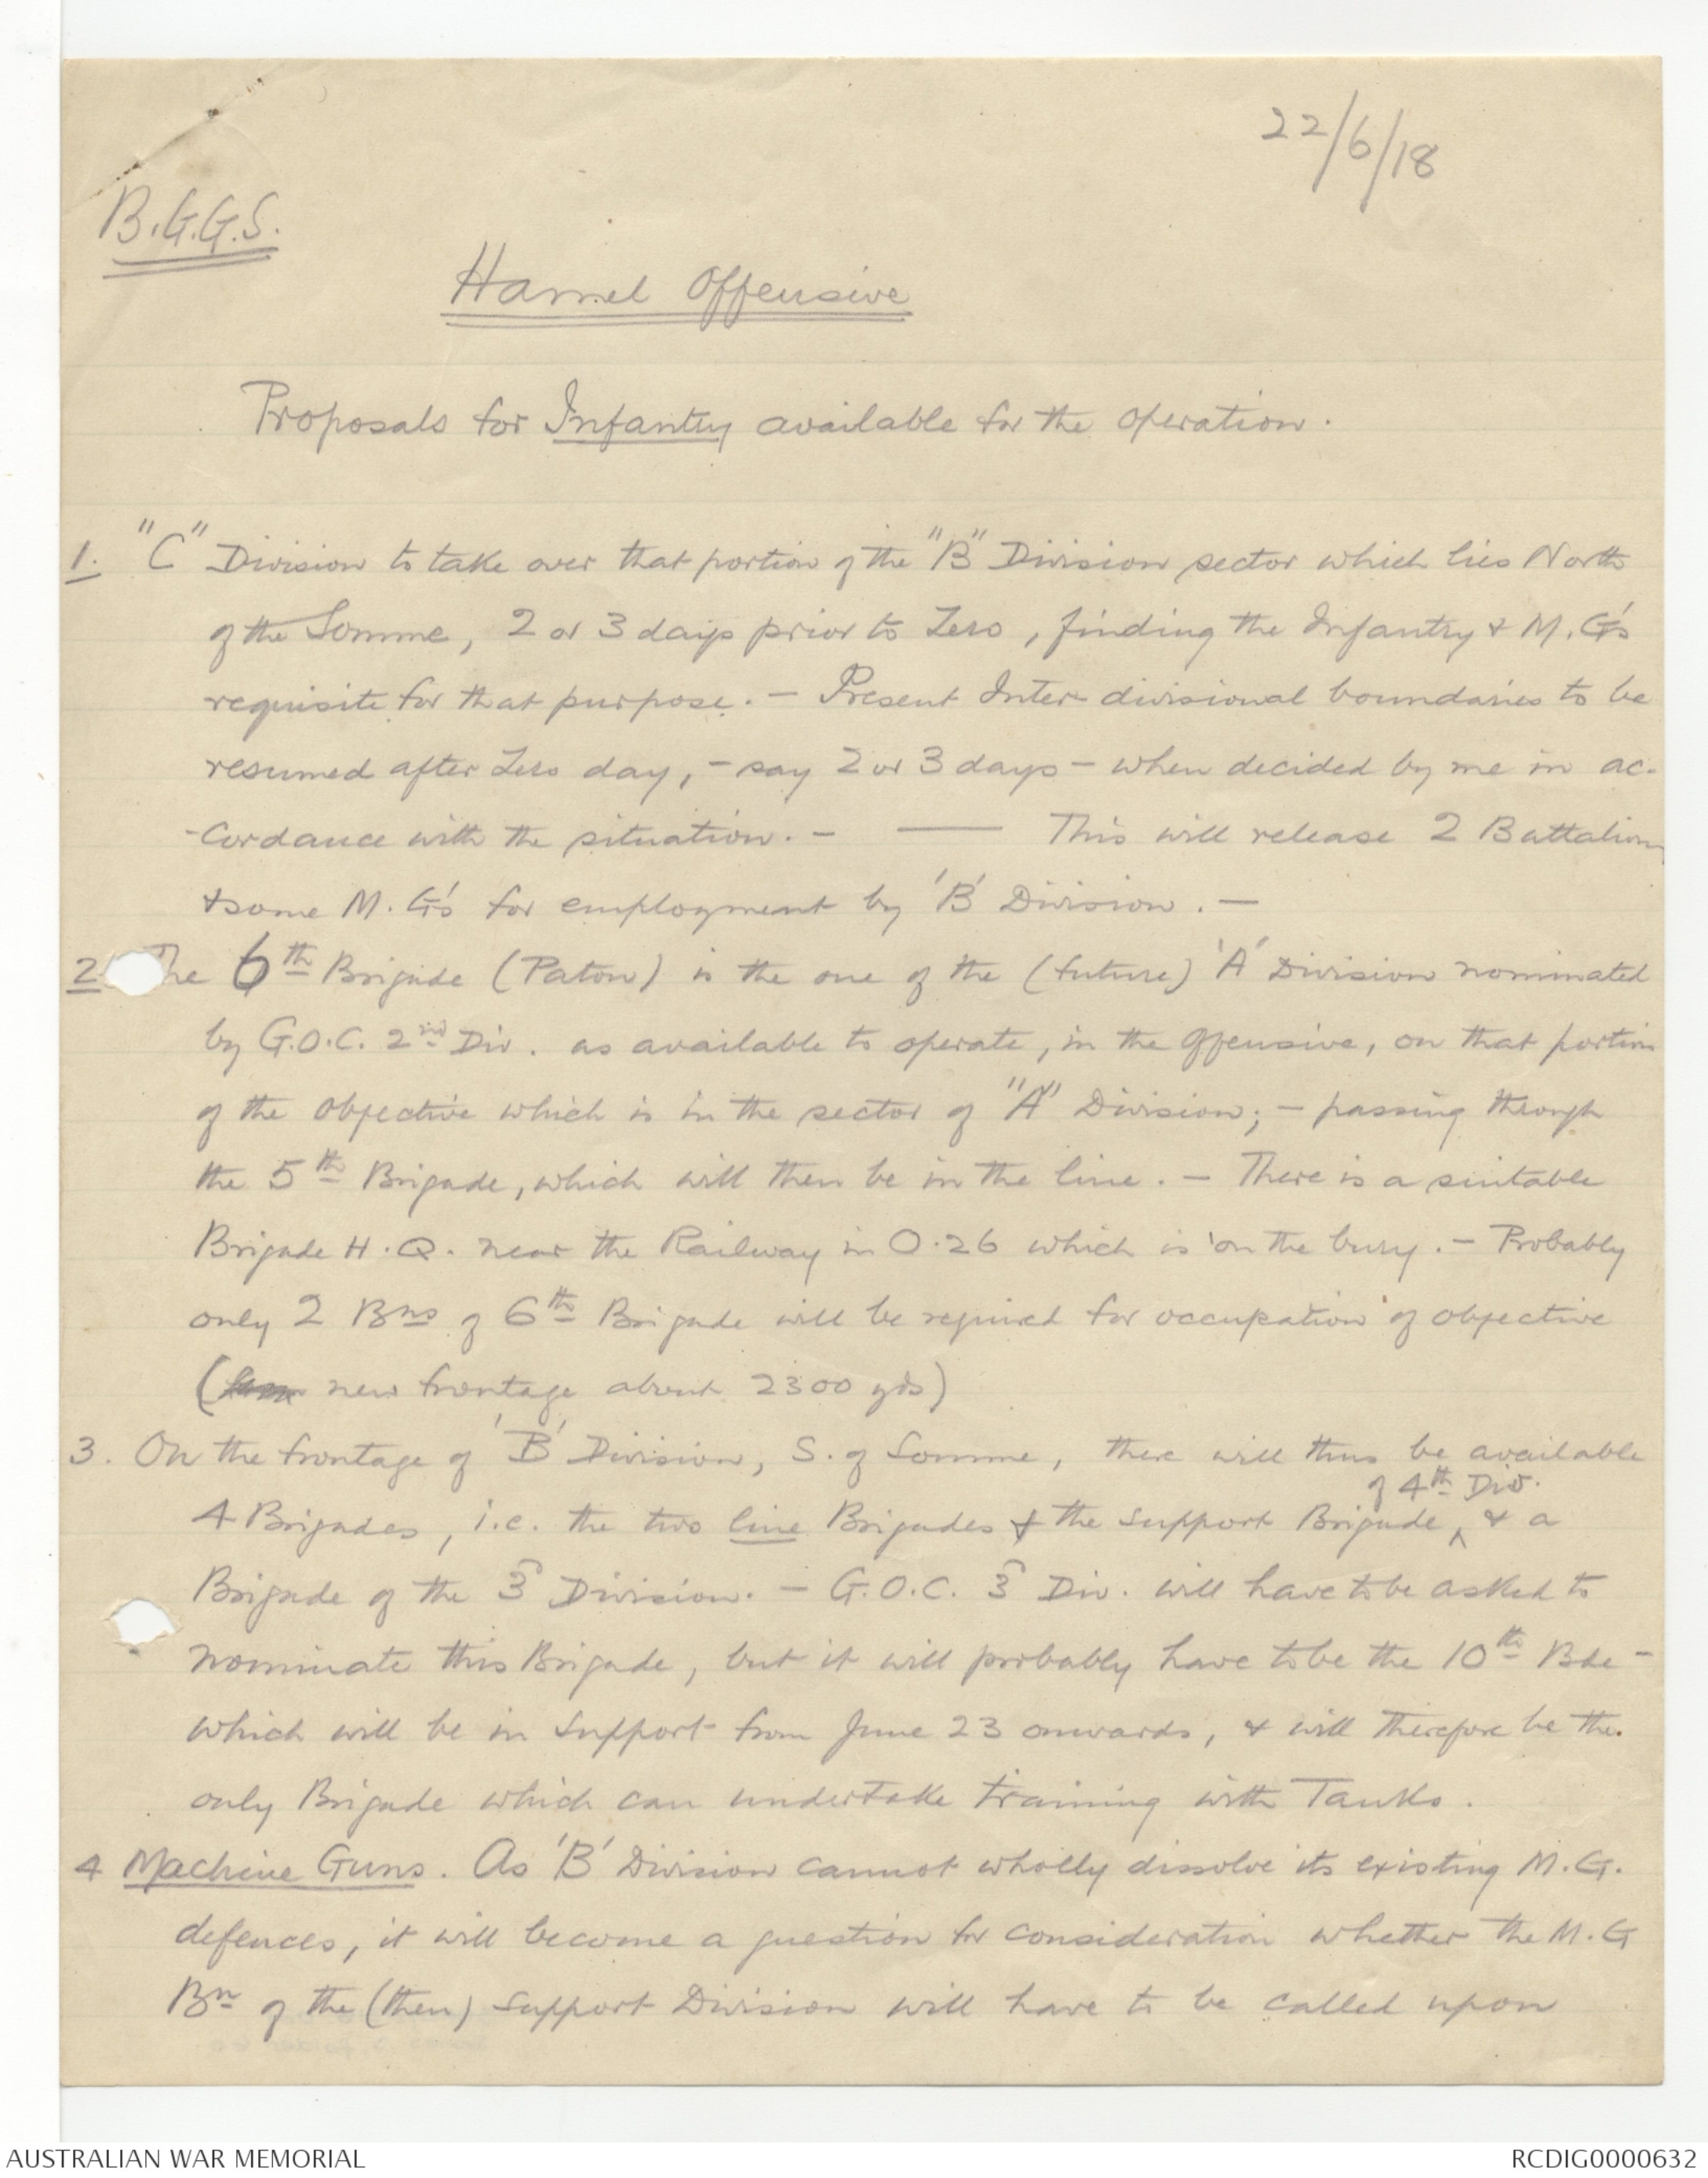 22/6/18
B.G.G.S.
Hamel Offensive
Proposals for Infantry available for the operation.
1. "C" Division to take over that portion of the "B" Division sector which lies North
of the Somme, 2 or 3 days prior to Zero, finding the Infantry & M.G's
requisite for that purpose. — Present Inter divisional boundaries to be
resumed after Zero day, - say 2 or 3 days - when decided by me in ac-
-cordance with the situation. - —— This will release 2 Battalions
& some M.G's for employment by 'B' Division. —
2 The 6th Brigade (Paton) is the one of the (future) 'A' Division nominated
by G.O.C. 2nd Div. as available to operate, in the offensive, on that portion
of the objective which is in the sector of "A" Division; - passing through
the 5th Brigade, which will then be in the line. - There is a suitable
Brigade H.Q. near the Railway in O.26 which is on the bury. - Probably
only 2 Bns of 6th Brigade will be required for occupation of objective
( new frontage about 2300 yds)
3. On the frontage of 'B' Division, S. of Somme, there will thus be available
of 4th Div.
4 Brigades, i.e. the two line Brigades & the support Brigade, & a
Brigade of the 3rd Division. - G.O.C. 3rd Div. will have to be asked to
nominate this Brigade, but it will probably have to be the 10th Bde -
which will be in support from June 23 onwards, & will therefore be the
only Brigade which can undertake training with Tanks.
4 Machine Guns. As 'B' Division cannot wholly dissolve its existing M.G.
defences, it will become a question for consideration whether the M.G
Bn of the (then) support Division will have to be called upon
AUSTRALIAN WAR MEMORIAL
RCDIG0000632